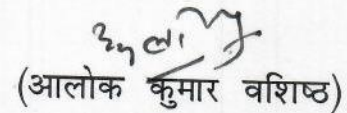 (आलोक कुमार वशिष्ठ)